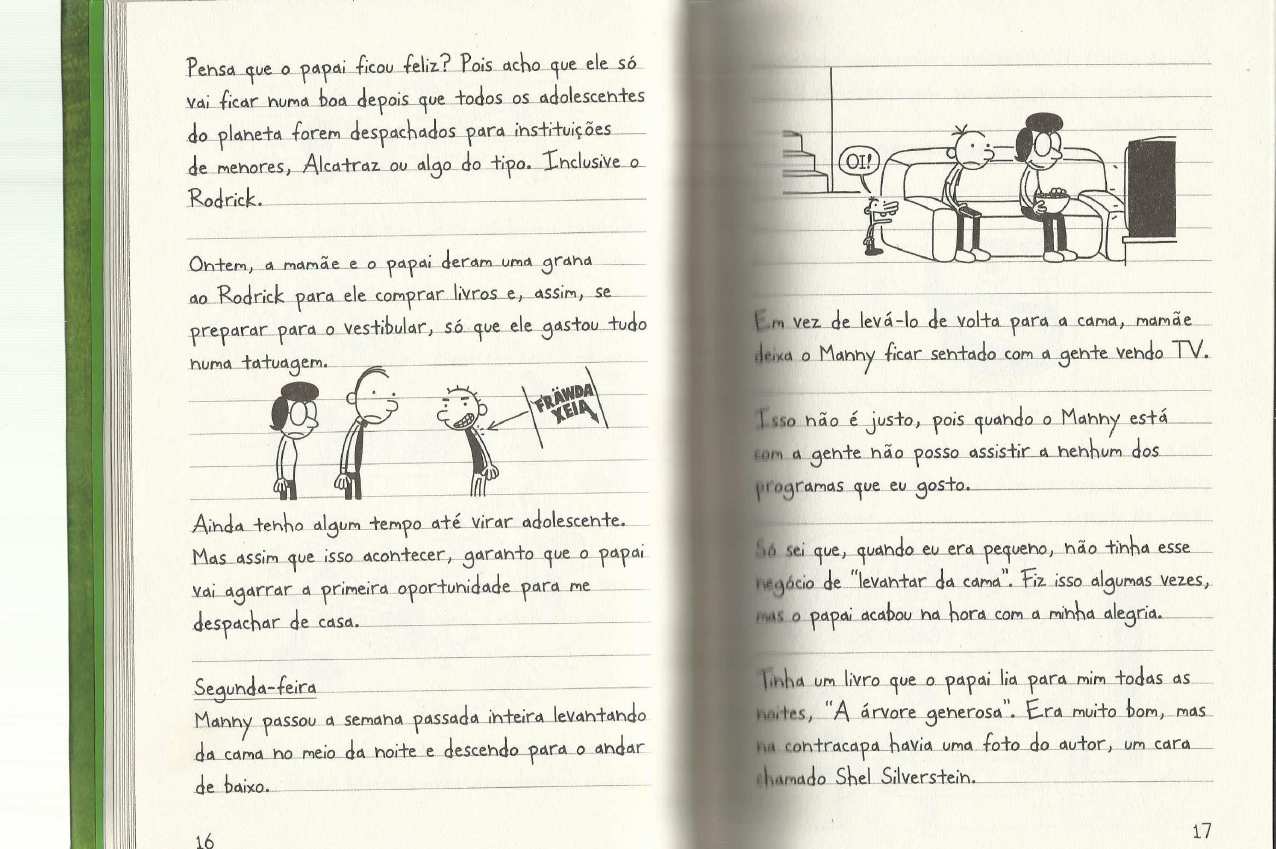 Pensa que o papai ficou feliz? Pois acho que ele só
vai ficar numa boa depois que todos os adolescentes
do planeta forem despachados para instituições
de menores, Alcatraz ou algo do tipo. Inclusive o
Rodrick.
Ontem, a mamãe e o papai deram uma grana
ao Rodrick para ele comprar livros e, assim, se
preparar para o vestibular, só que ele gastou tudo
numa tatuagem.
FRÄWDA
XEIA
Ainda tenho algum tempo até virar adolescente.
Mas assim que isso acontecer, garanto que o papai
vai agarrar a primeira oportunidade para me
despachar de casa.
Segunda-feira
Manny passou a semana passada inteira levantando
da cama no meio da noite e descendo para o andar
de baixo.
16
OI!
Em vez de levá-lo de volta para a cama, mamãe
deixa o Manny ficar sentado com a gente vendo TV.
Isso não é justo, pois quando o Manny está
com a gente não posso assistir a nenhum dos
programas que eu gosto.
Só sei que, quando eu era pequeno, não tinha esse
negócio de "levantar da cama". Fiz isso algumas vezes,
mas o papai acabou na hora com a minha alegria.
Tinha um livro que o papai lia para mim todas as
noites, "A árvore generosa". Era muito bom, mas
na contracapa havia uma foto do autor, um cara
chamado Shel Silverstein.
17